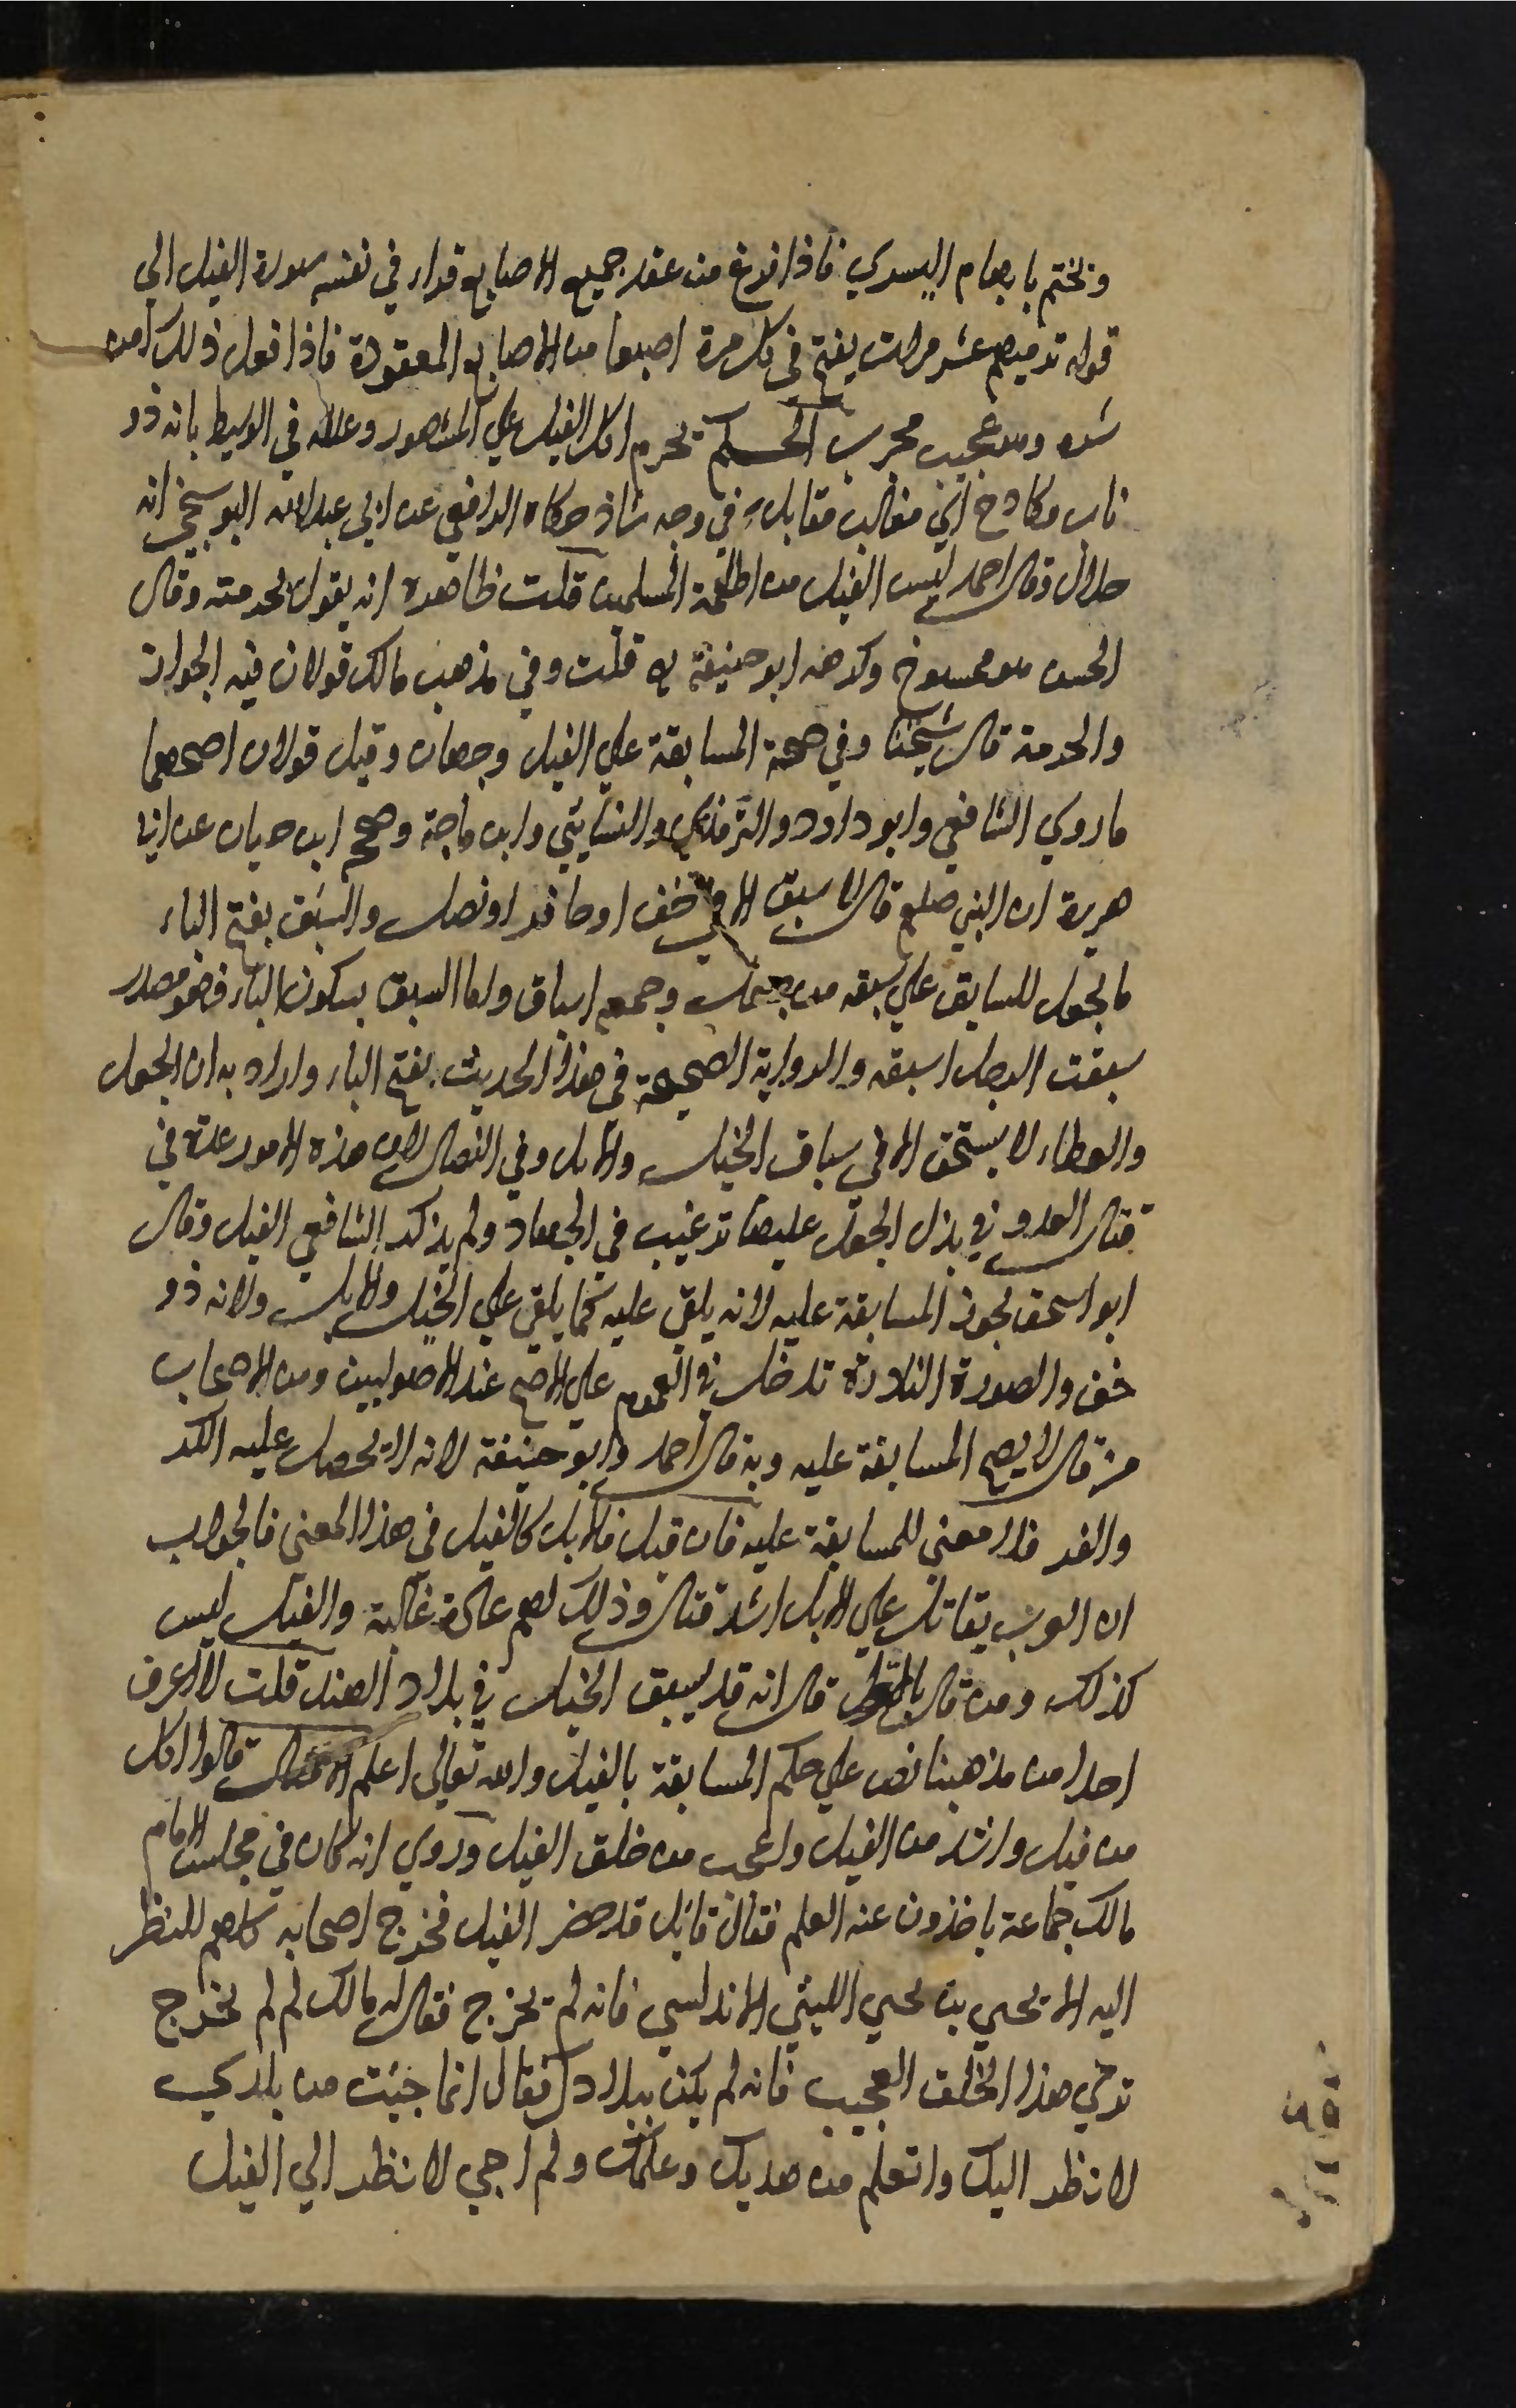 ويختم بابهام اليسرى فاذا فرغ من عقد جميع الاصابع قراء في نفسه سورة الفيل الي
قوله ترميهم عشر مرات يفتح في كل مرة اصبعا من الاصابع المعقودة فاذا فعل ذلك امن
شره وهو عجيب مجرب الحكم يحرم اكل الفيل علي المشهور وعلله في الوسيط بانه ذو
ناب مكادح اي مغالب مقابل وفي وجه شاذ حكاه الرافعي عن ابي عبد الله البوسنجي انه
حلال وقال احمد ليس الفيل من اطعمة المسلمين قلت ظاهره انه يقول بحرمته وقال
الحسن هو ممسوخ وكرهه ابو حنيفة قلت وفي مذهب مالك قولان فيه الجواز
والحرمة قال شيخنا وفي صحة المسابقة علي الفيل وجهان وقيل قولان اصحهما
ما روي الشافعي وابو داود والترمذي والنسائي وابن ماجة وصحح ابن حبان عن ابي
هريرة ان النبي صلعم قال لا سبق الا في خف او حافر او نصل والسبق بفتح الباء
ما يجعل للسابق علي سبقه من جعل وجمعه اسباق واما السبق بسكون الباء فهو مصدر
سبقت الرجل اسبقه والرواية الصحيحة في هذا الحديث بفتح الباء واراد به ان الجعل
والعطاء لا يستحق الا في سباق الخيل والابل وفي النصال لان هذه الامور عدة في
قتال العدو في بذل الجعل عليها ترغيب في الجهاد ولم يذكر الشافعي الفيل وقال
ابو اسحق يجوز المسابقة عليه لانه يلقى عليه كما يلقى علي الخيل والابل ولانه ذو
خف والصورة النادرة تدخل في العموم علي الاصح عند الاصوليين ومن الاصحاب
من قال لا يصح المسابقة عليه وبه قال احمد وابو حنيفة لانه لا يحصل عليه الكر
والفر فلا معني للمسابقة عليه فان قيل فالابل كالفيل في هذا المعني فالجواب
ان العرب يقاتل علي الابل اشد قتال وذلك لهم عادة غالبة والفيل ليس
كذلك ومن قال قال انه قد يسبق الخيل في بلاد الهند قلت لا اعرف
احدا من مذهبنا نص علي حكم المسابقة بالفيل والله تعالي اعلم الامثال قالوا اكل
من فيل واشد من الفيل واعجب من خلق الفيل وروي انه كان في مجلس الامام
مالك جماعة ياخذون عنه العلم فقال قائل قد حضر الفيل فخرج اصحابه كلهم للنظر
اليه الا يحيي بن يحيي الليثي الاندلسي فانه لم يخرج فقال له مالك لم لم يخرج
ترى هذا الخلق العجيب فانه لم يكن ببلادك فقال انما جيئت من بلدي
لانظر اليك واتعلم من هديك وعلمك ولم اجي لانظر الي الفيل